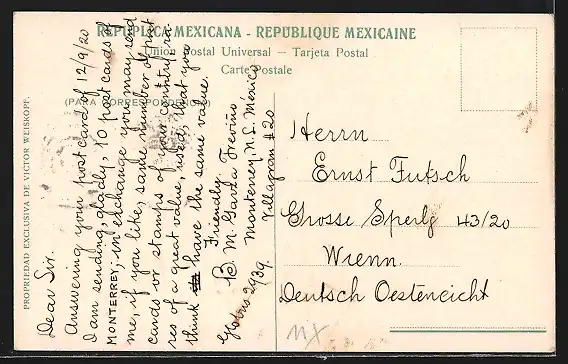 REPUBLICA MEXICANA - REPUBLIQUE MEXICAINE
Union Postal Universal — Tarjeta Postal
Carte Postale
(PARA CORRESPONDENCIA)
PROPRIEDAD EXCLUSIVA DE VICTOR WEISKOPF.
Dear Sir.
Answering your post card of 12/9/20
I am sending, gladly, 10 post cards of
MONTERREY, in exchange you may send
me, if you like, same number of post
cards or stamps of your country, in
res of a great value, used, that you
think have the same value.
Friendly.
B. M. Garza Treviño
Monterrey, N.L. Mexico
Villagran #20
29/39.
Herrn
Ernst Futsch
Grosse Sperlg 43/20
Wienn.
Deutsch Oesteneicht